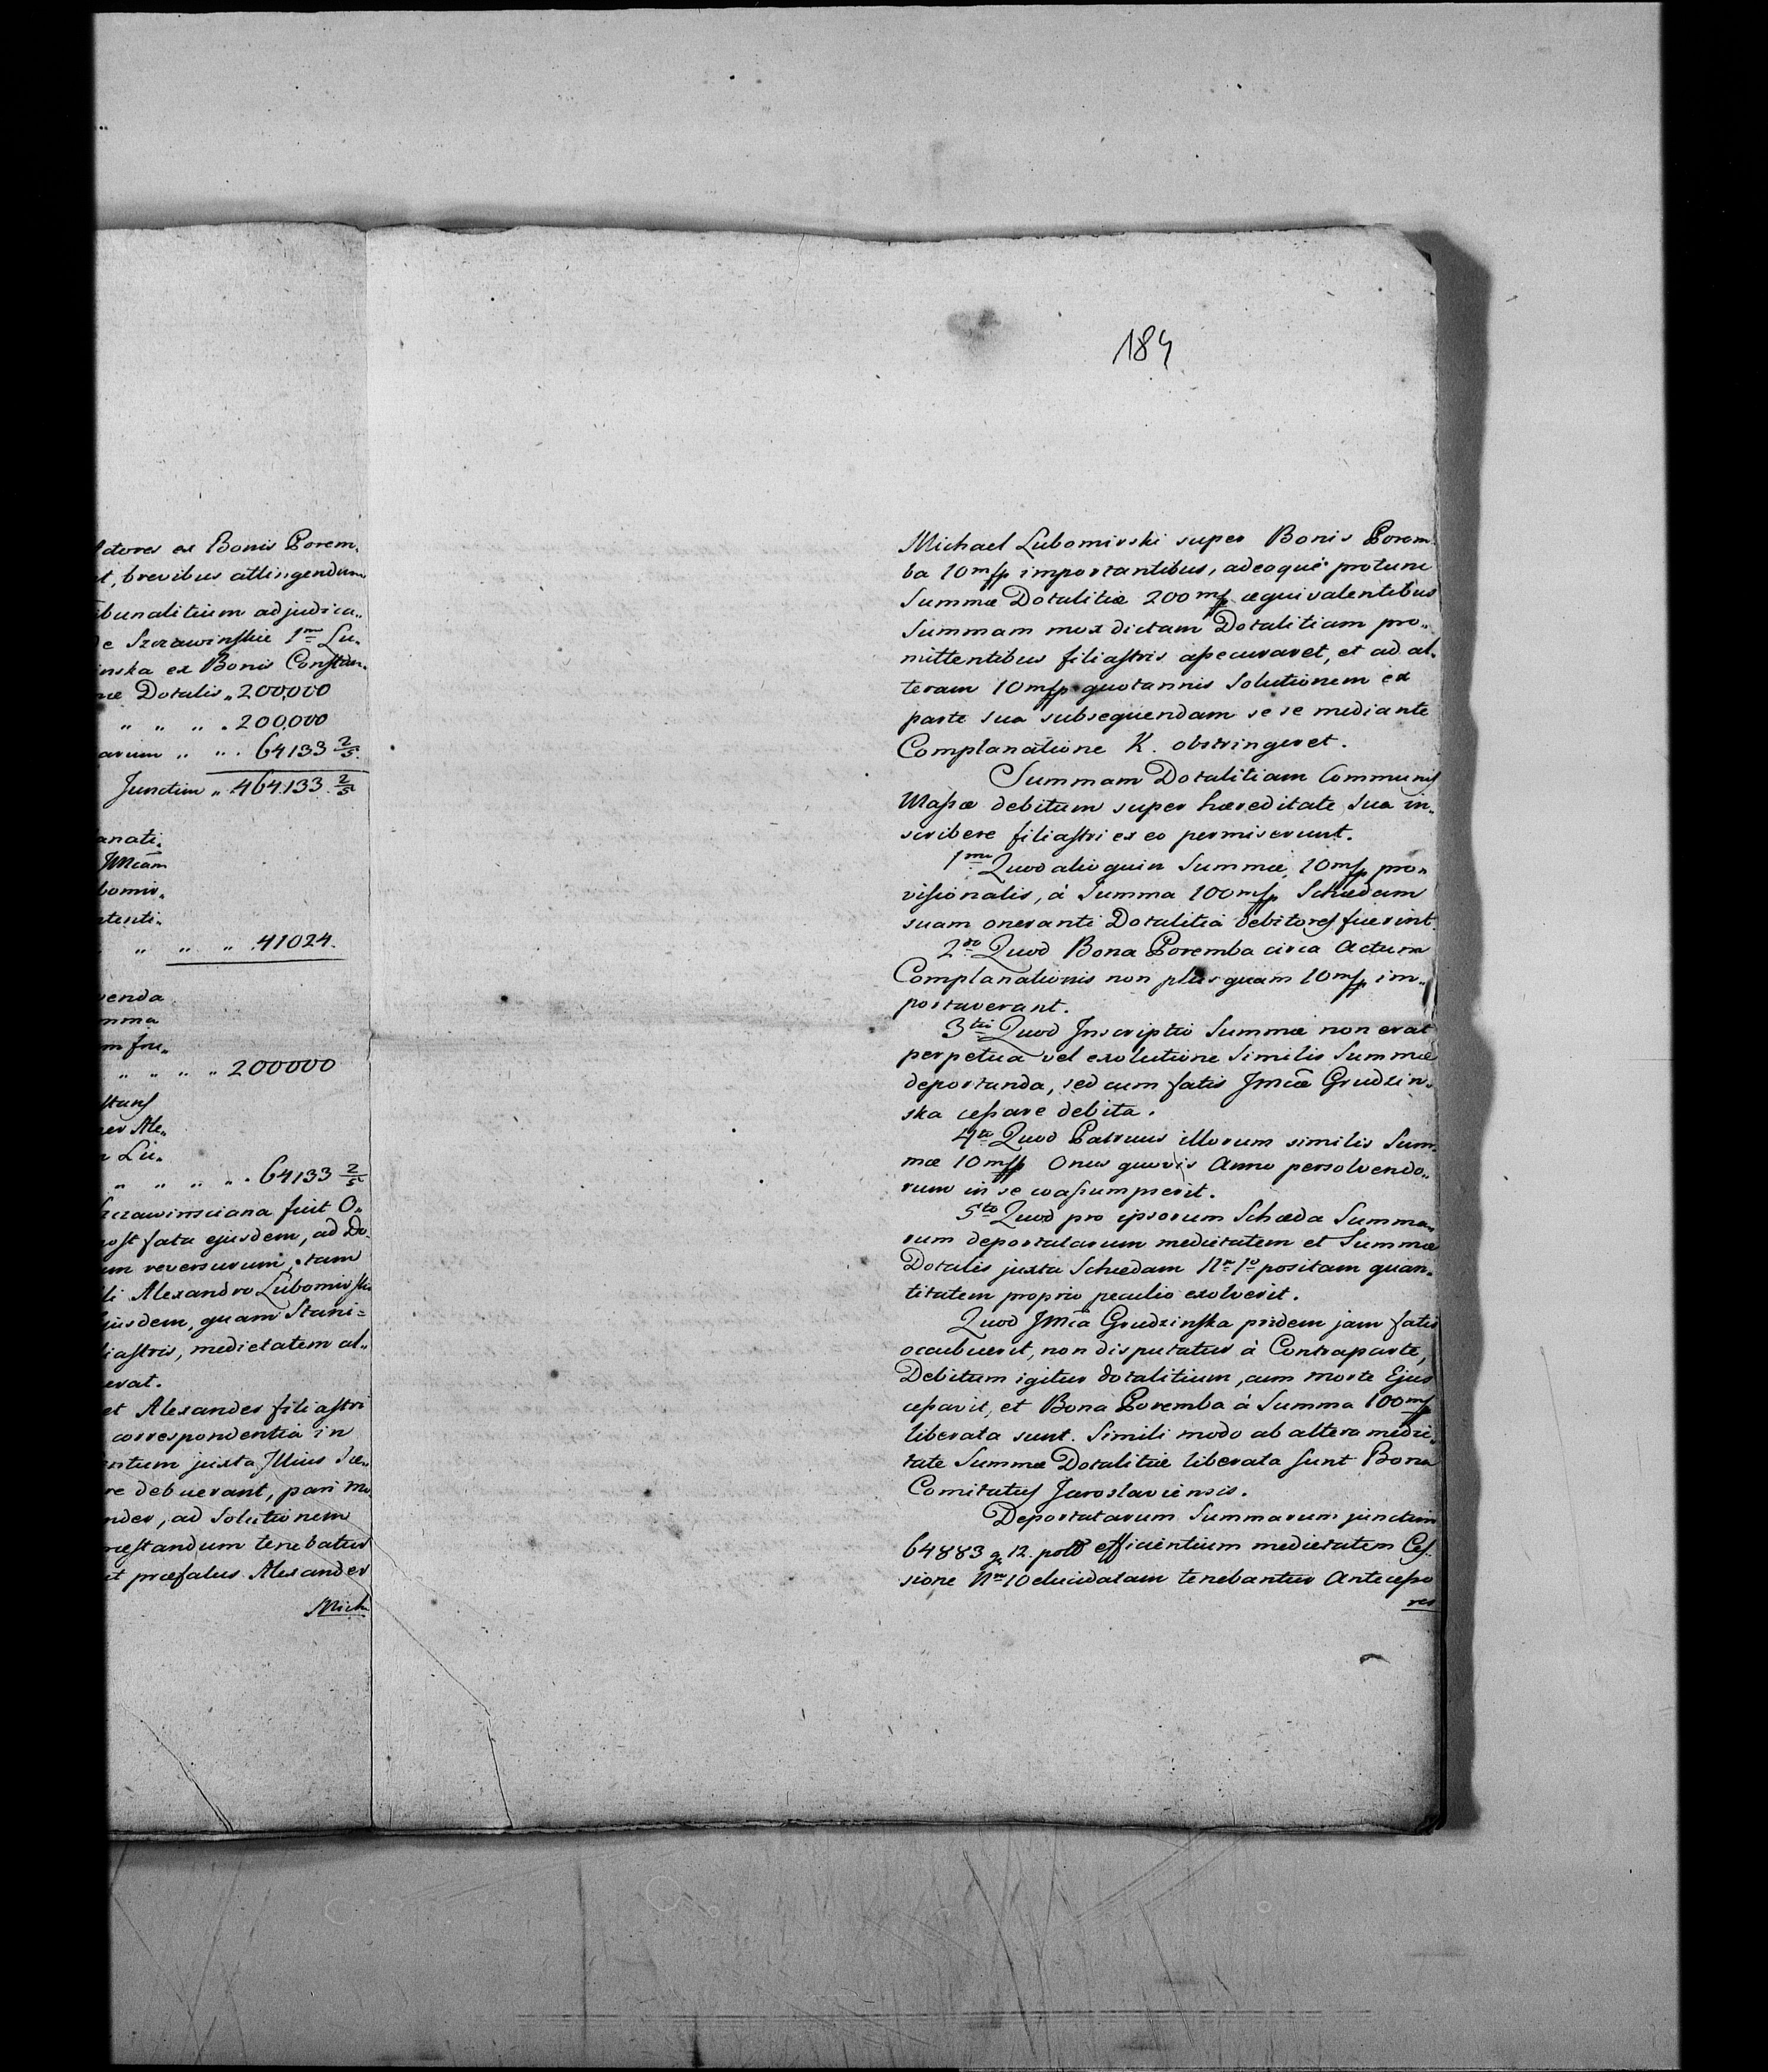 ctores ex Bonis Porem„
t, brevibus attingendum
ibunalitium adjudica„
de Szczawinskie 1mo Lu„
inska ex Bonis Constan„
mæ Dotalis „ 200,000
„ „ „ „ 200,000
arum „ „ „ 64133 2/5
Junctim „ 464.133. 2/5
anati„
JMciam
bomir„
ntenti„
„ „ „ 41024.
venda
mma
m fru„
„ „ „ „ 200000
stans
er Ale„
n Lu„
„ „ „ „ 64133 2/5
zczawinsciana fuit O„
post fata ejusdem, ad Do„
um reversurum, tam
li Alexandro Lubomirski
jusdem, quam Stani=
iastris, medietatem al„
erat.
et Alexander filiastri
correspondentia in
entum juxta Illius
re debuerant, pari mo„
nder, ad Solutionem
ræstandum tenebatur
et præfatus Alexander
Mich
184
Michael Lubomirski super Bonis Porem„
ba 10 mfp importantibus, adeoque protunc
Summæ Dotalitiæ 200 mfp æquivalentibus
Summam mox dictam Dotalitiam pro„
mittentibus filiastris assecuraret, et ad al„
teram 10 mfp quotannis Solutionem ex
parte sua subsequendam se se mediante
Complanatione K. obstringeret.
Summam Dotalitiam Communis
Massæ debitum super hæreditate sua in„
scribere filiastri ex eo permiserunt.
1mo Quod alioquin Summæ 10 mfp pro„
visionalis, à Summa 100 mfp Schedam
suam oneranti Dotalitia debitores fuerint.
2do Quod Bona Poremba circa Actum
Complanationis non plus quam 10 mfp im„
portaverant.
3tio Quod Inscriptio Summæ non erat
perpetua vel exolutione Similis Summæ
deportanda, sed cum fatis Jmciæ Grudzin„
ska cessare debita.
4to Quod Patruus illorum similis Sum„
mæ 10 mfp Onus quovis Anno persolvendo„
rum in se coassumpserit.
5to Quod pro ipsorum Schæda Summa„
rum deportatarum medietatem et Summæ
Dotalis juxta Schedam Nro 1o positam quan„
titatem proprio peculio exolverit.
Quod JMcia Grudzinska pridem jam fatis
occubuerit, non disputatur à Contraparte,
Debitum igitur dotalitium, cum morte Ejus
cessavit, et Bona Poremba à Summa 100 mfp
liberata sunt. Simili modo ab altera medie„
tate Summæ Dotalitiæ liberata sunt Bona
Comitatus Jaroslaviensis.
Deportatarum Summarum junctim
64883 g. 12. poll efficientium medietatem Ces„
sione Nro 10 elucidatam tenebantur Antecesso
res